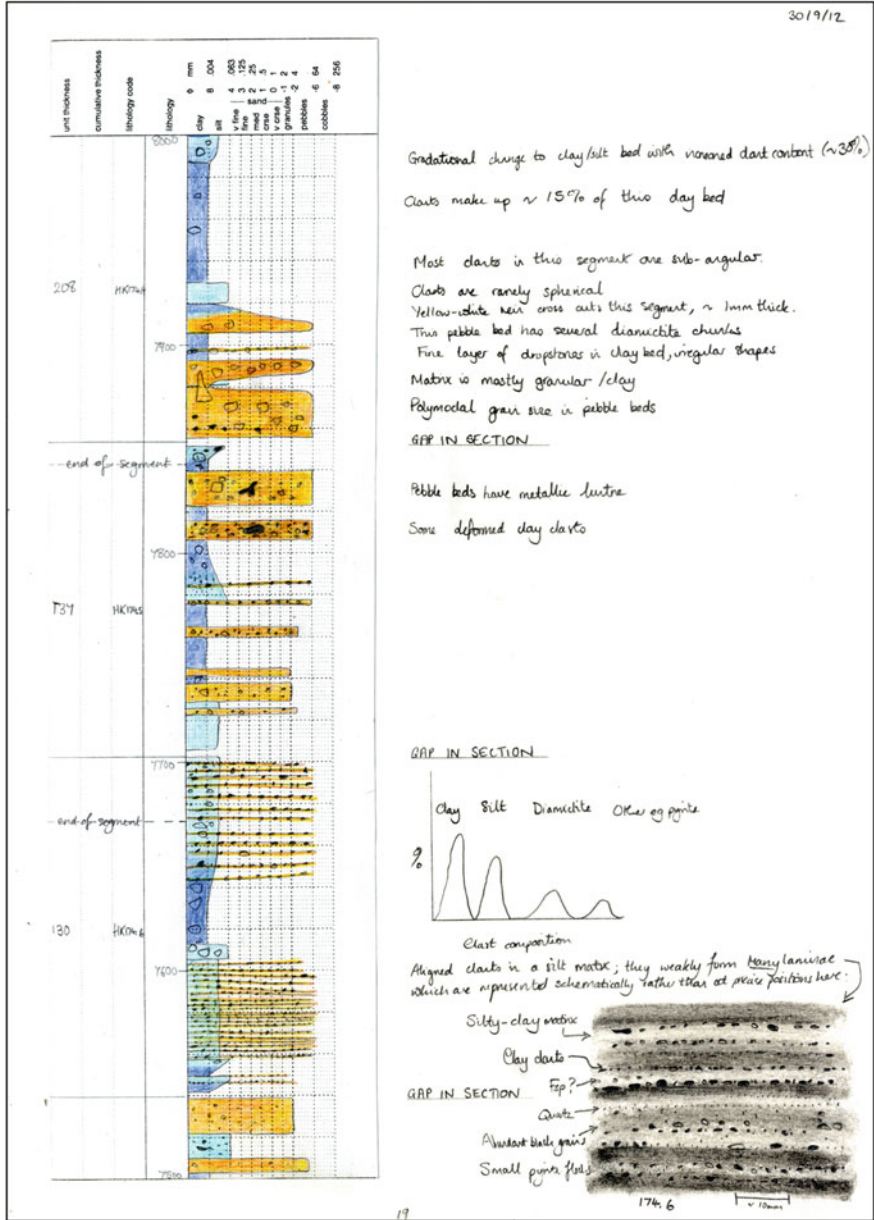 30/9/12
unit thickness
cumulative thickness
lithology code
lithology
φ mm
clay 8 .004
silt
4 .063
v fine 3 .125
fine 2 .25
med 1 .5
crse 0 1
v crse -1 2
granules -2 4
pebbles -6 64
cobbles -8 256
sand
8000
Gradational change to clay/silt bed with increased clast content (~30%)
Clasts make up ~ 15% of this clay bed
Most clasts in this segment are sub-angular.
208
Clasts are rarely spherical
Yellow-white vein cross cuts this segment, ~ 1mm thick.
This pebble bed has several diamictite chunks
7900
Fine layer of dropstones in clay bed, irregular shapes
Matrix is mostly granular /clay
Polymodal grain size in pebble beds
GAP IN SECTION
end of segment
Pebble beds have metallic lustre
Some deformed clay clasts
7800
737
HK1745
GAP IN SECTION
7700
Clay Silt Diamictite Other eg pyrite
end of segment
%
130
HK1746
Clast composition
Aligned clasts in a silt matrix; they weakly form Many laminae
which are represented schematically rather than at precise positions here:
7600
Silty-clay matrix
Clay clasts
Fsp?
GAP IN SECTION
Quartz
Abundant black grains
Small pyrite flecks
7500
174.6
~ 10mm
19